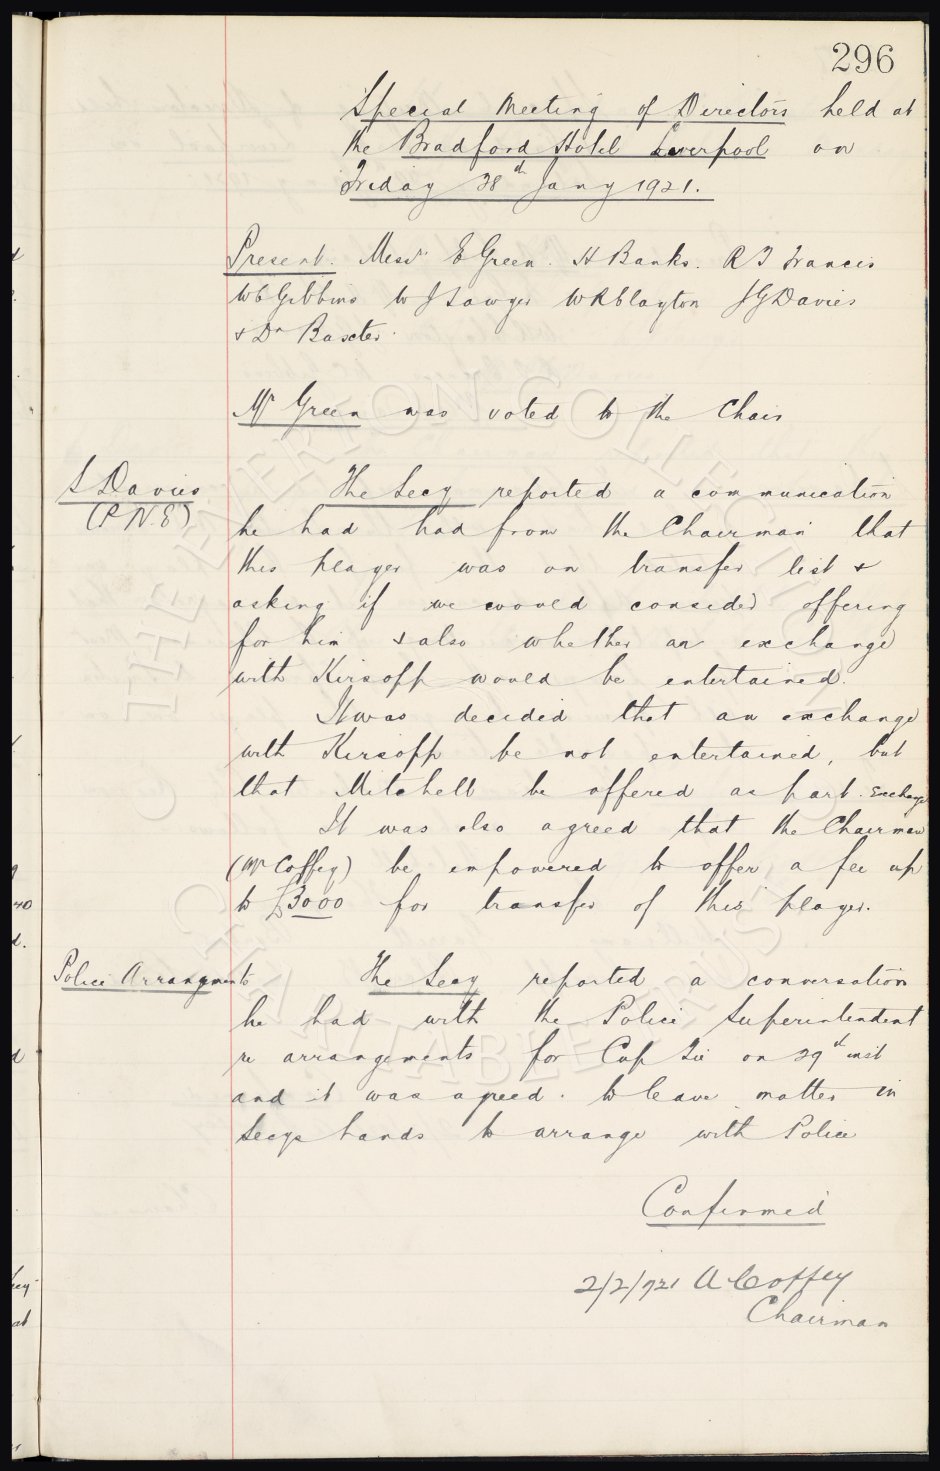 296
Special Meeting of Directors held at
the Bradford Hotel Liverpool on
Friday 28th Jany 1921.
Present. Messrs E Green. H Banks. R T Francis
W C Gibbins W J Sawyer W R Clayton J G Davies
& Dr Baxter.
Mr Green was voted to the Chair
S Davies
(P.N.E)
The Secy reported a communication
he had had from the Chairman that
this player was on transfer list &
asking if we would consider offering
for him & also whether an exchange
with Kirsopp would be entertained.
It was decided that an exchange
with Kirsopp be not entertained, but
that Mitchell be offered as part. Exchange
It was also agreed that the Chairman
(Mr Coffey) be empowered to offer a fee up
to £3000 for transfer of this player.
Police Arrangements
The Secy reported a conversation
he had with the Police Superintendent
re arrangements for Cup Tie on 29th inst
and it was agreed. to leave matter in
Secys hands to arrange with Police
Confirmed
2/2/1921 A Coffey
Chairman
THE EVERTON COLLECTION
CHARITABLE TRUST